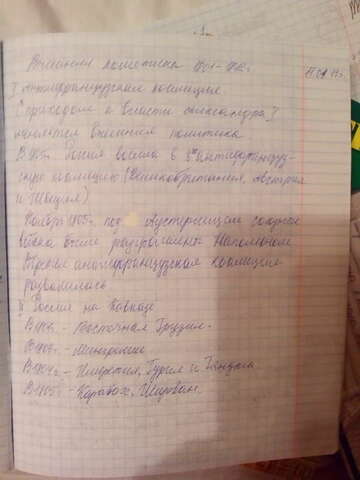 Внешняя политика 1801-1812г.
I Антифранцузская коалиция
С приходом к власти Александра I
меняется внешняя политика
В 1805г. Россия вошла в 3ю антифранцузс-
кую коалицию (Великобритания, Австрия
и Швеция)
Ноябрь 1805г. под Аустерлицем союзные
войска были разгромлены Наполеоном
Третья антифранцузская коалиция
развалилась
II Россия на Кавказе
Восточная Грузия.
В 1803г. - Мингрелия
В 1804г. - Имеретия, Гурия и Гянджа
В 1805г. - Карабах, Ширван.